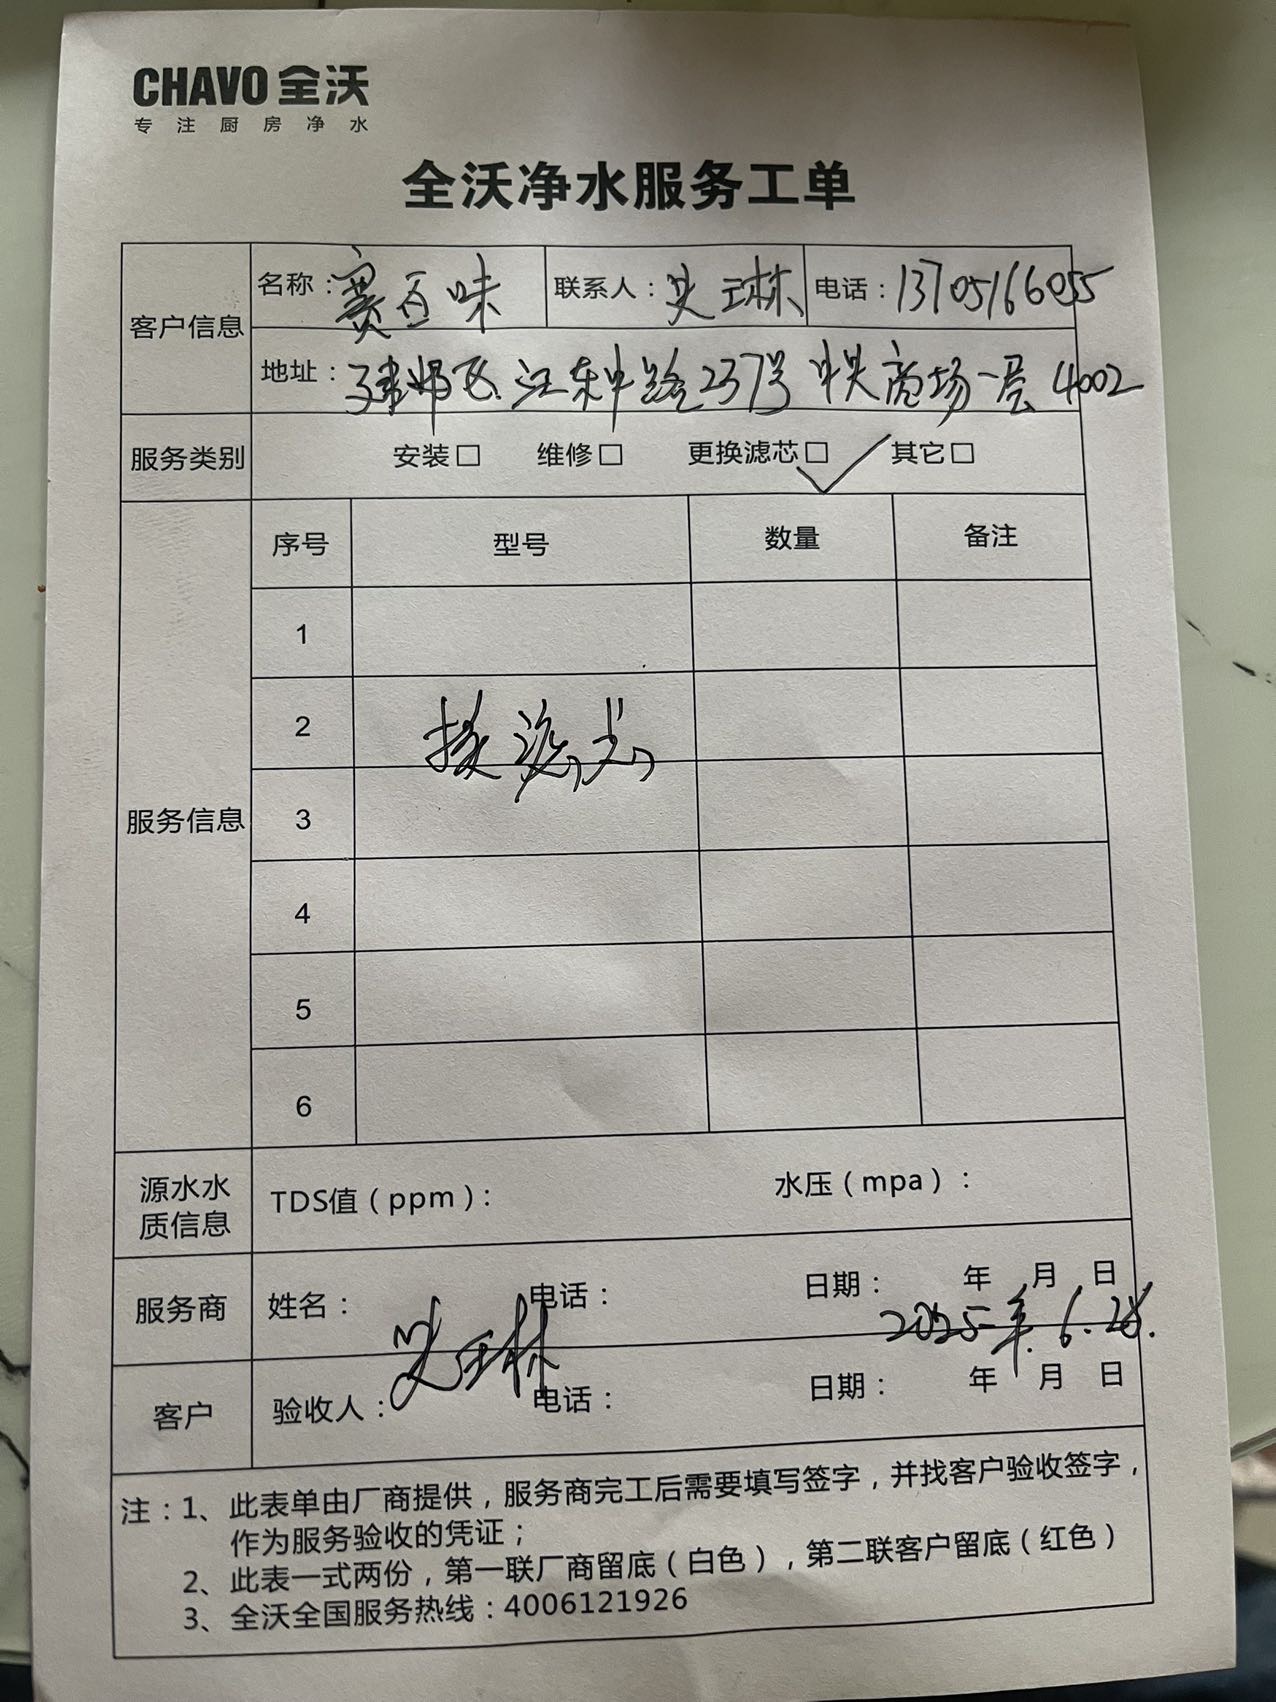 CHAVO 全沃
专注厨房净水
全沃净水服务工单
客户信息
名称：赛百味 联系人：史玉琳 电话：13705166055
地址：建邺区江东中路237号中央商场一层4002
服务类别 安装□ 维修□ 更换滤芯□✓ 其它□
服务信息
序号 型号 数量 备注
1
2 换滤芯
3
4
5
6
源水水质信息 TDS值（ppm）： 水压（mpa）：
服务商 姓名： 电话： 日期： 年 月 日
2025年.6.28.
客户 验收人： 电话： 日期： 年 月 日
注：1、此表单由厂商提供，服务商完工后需要填写签字，并找客户验收签字，
作为服务验收的凭证；
2、此表一式两份，第一联厂商留底（白色），第二联客户留底（红色）
3、全沃全国服务热线：4006121926